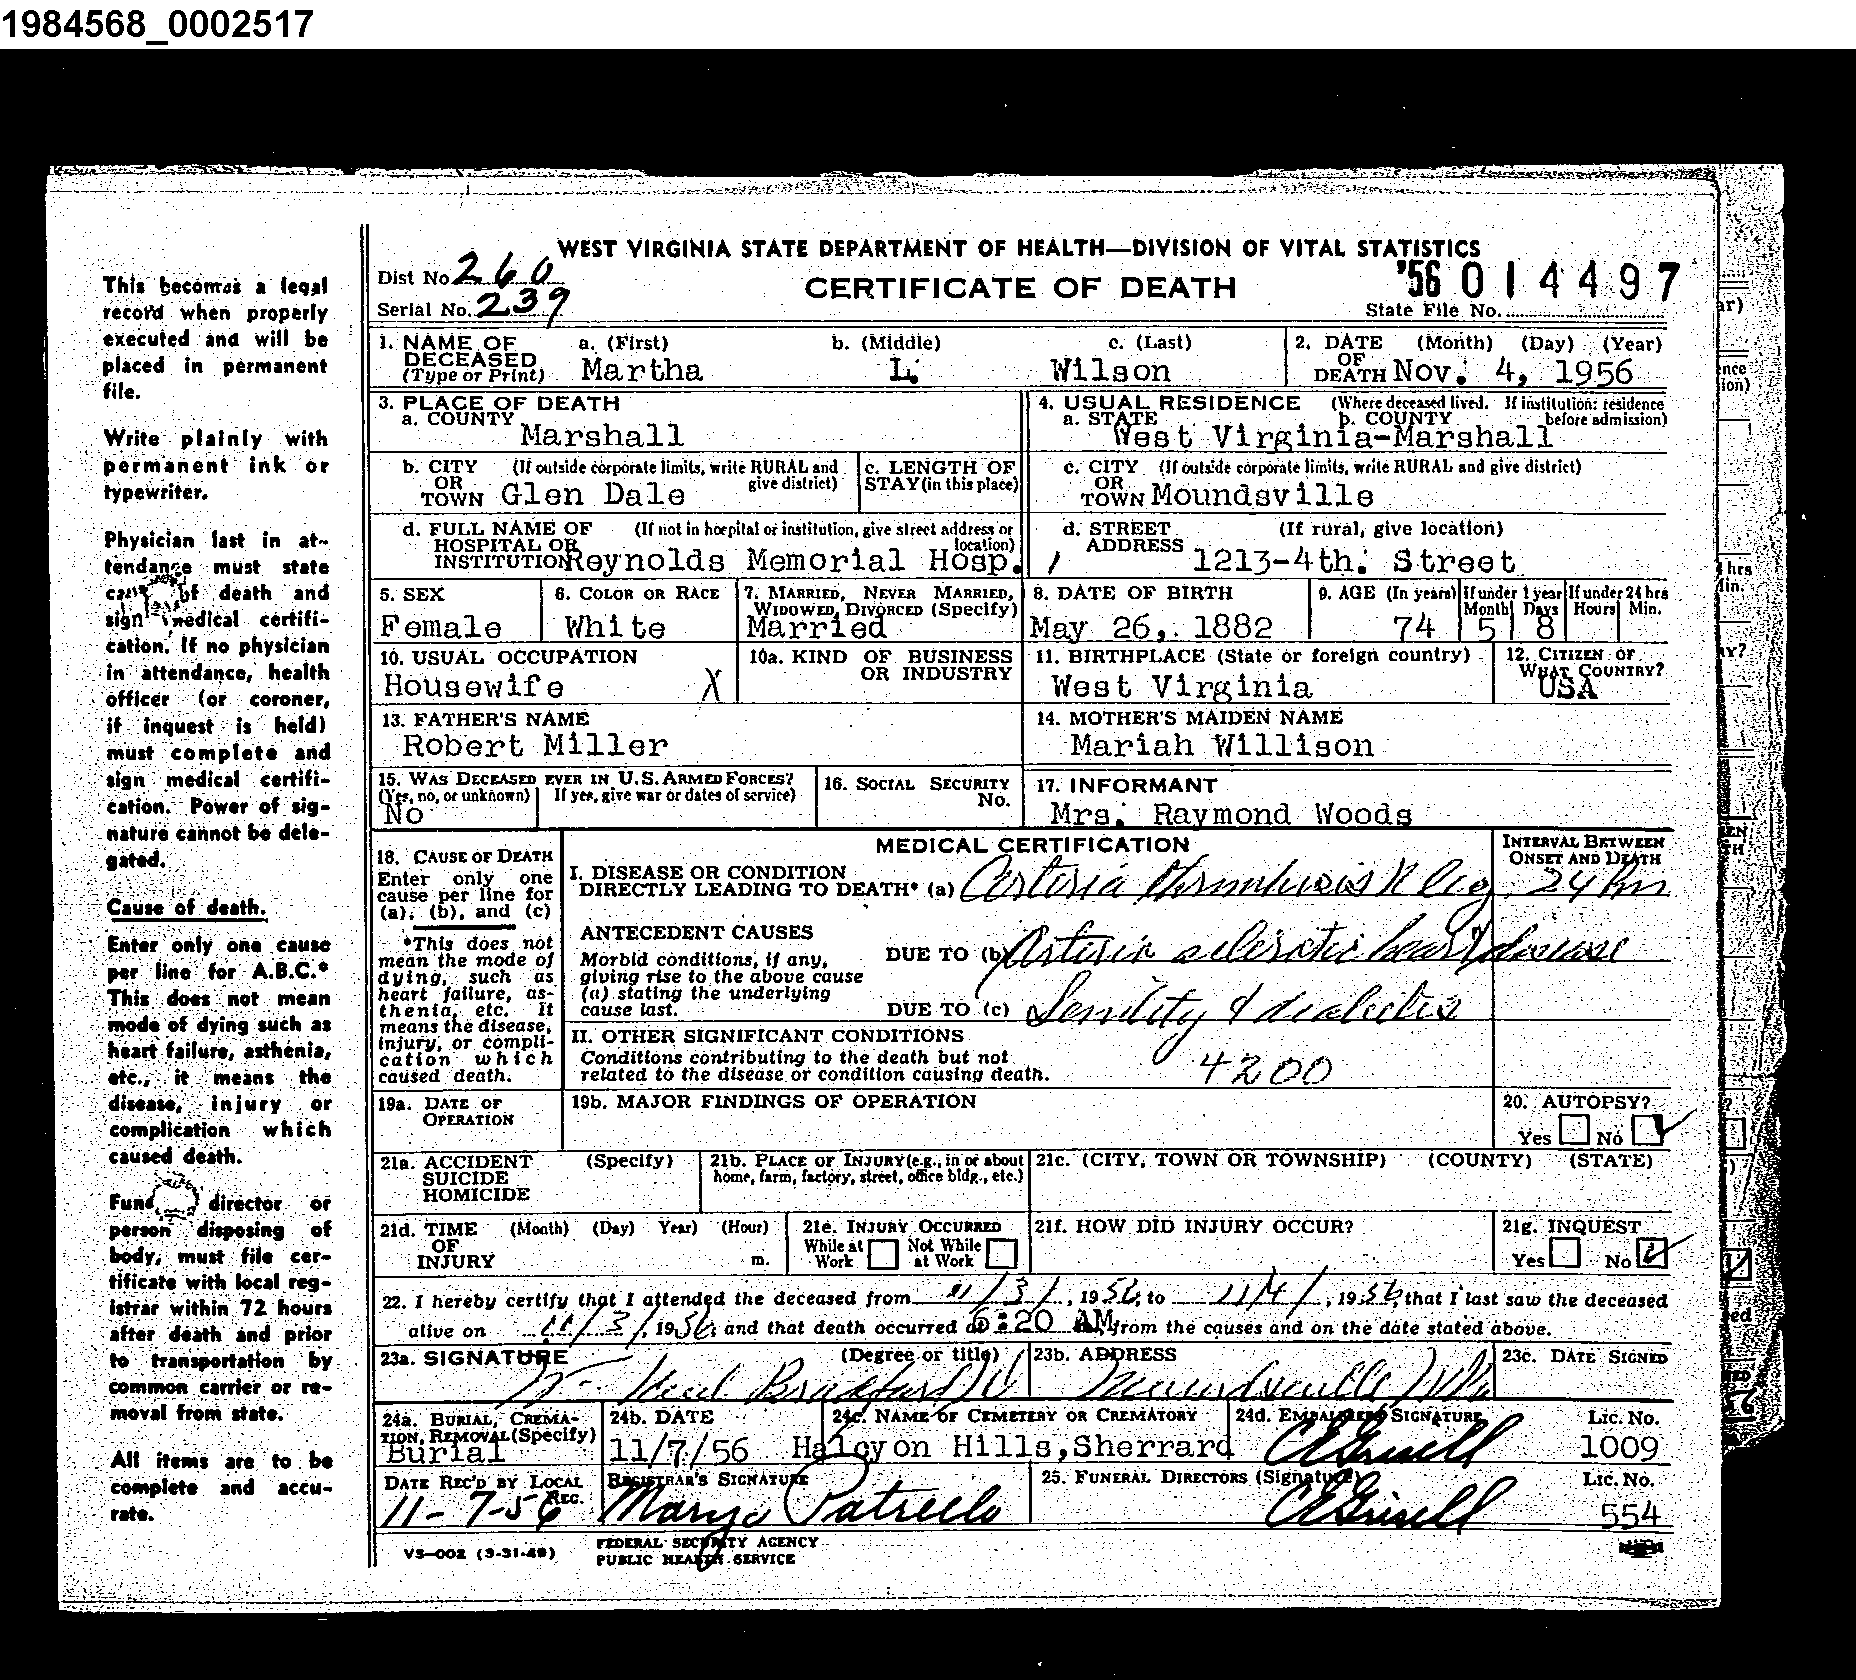 1984568_0002517
WEST VIRGINIA STATE DEPARTMENT OF HEALTH—DIVISION OF VITAL STATISTICS
Dist No. 260
Serial No. 239
CERTIFICATE OF DEATH
'56 014497
State File No.
This becomes a legal
record when properly
executed and will be
placed in permanent
file.
Write plainly with
permanent ink or
typewriter.
Physician last in at-
tendance must state
cause of death and
sign medical certifi-
cation. If no physician
in attendance, health
officer (or coroner,
if inquest is held)
must complete and
sign medical certifi-
cation. Power of sig-
nature cannot be dele-
gated.
Cause of death.
Enter only one cause
per line for A.B.C.*
This does not mean
mode of dying such as
heart failure, asthenia,
etc., it means the
disease, injury or
complication which
caused death.
Funeral director or
person disposing of
body, must file cer-
tificate with local reg-
istrar within 72 hours
after death and prior
to transportation by
common carrier or re-
moval from state.
All items are to be
complete and accu-
rate.
1. NAME OF DECEASED (Type or Print) a. (First) b. (Middle) c. (Last)
Martha L. Wilson
2. DATE OF DEATH (Month) (Day) (Year)
Nov. 4, 1956
3. PLACE OF DEATH
a. COUNTY Marshall
4. USUAL RESIDENCE (Where deceased lived. If institution: residence before admission)
a. STATE b. COUNTY
West Virginia-Marshall
b. CITY OR TOWN (If outside corporate limits, write RURAL and give district)
Glen Dale
c. LENGTH OF STAY (in this place)
c. CITY OR TOWN (If outside corporate limits, write RURAL and give district)
Moundsville
d. FULL NAME OF HOSPITAL OR INSTITUTION (If not in hospital or institution, give street address or location)
Reynolds Memorial Hosp.
d. STREET ADDRESS (If rural, give location)
1213-4th. Street
5. SEX
Female
6. COLOR OR RACE
White
7. MARRIED, NEVER MARRIED, WIDOWED, DIVORCED (Specify)
Married
8. DATE OF BIRTH
May 26, 1882
9. AGE (In years) If under 1 year Months Days If under 24 hrs Hours Min.
74 5 8
10. USUAL OCCUPATION
Housewife X
10a. KIND OF BUSINESS OR INDUSTRY
11. BIRTHPLACE (State or foreign country)
West Virginia
12. CITIZEN OF WHAT COUNTRY?
USA
13. FATHER'S NAME
Robert Miller
14. MOTHER'S MAIDEN NAME
Mariah Willison
15. WAS DECEASED EVER IN U.S. ARMED FORCES?
(Yes, no, or unknown) If yes, give war or dates of service)
No
16. SOCIAL SECURITY No.
17. INFORMANT
Mrs. Raymond Woods
18. CAUSE OF DEATH
Enter only one
cause per line for
(a), (b), and (c)
*This does not
mean the mode of
dying, such as
heart failure, as-
thenia, etc. It
means the disease,
injury, or compli-
cation which
caused death.
MEDICAL CERTIFICATION
INTERVAL BETWEEN ONSET AND DEATH
I. DISEASE OR CONDITION
DIRECTLY LEADING TO DEATH* (a) Arteria thrombosis R leg 24 hrs
ANTECEDENT CAUSES
Morbid conditions, if any,
giving rise to the above cause
(a) stating the underlying
cause last.
DUE TO (b) Arterio sclerotic heart disease
DUE TO (c) Senility & diabetes
II. OTHER SIGNIFICANT CONDITIONS
Conditions contributing to the death but not
related to the disease or condition causing death.
4200
19a. DATE OF OPERATION
19b. MAJOR FINDINGS OF OPERATION
20. AUTOPSY?
Yes No
21a. ACCIDENT SUICIDE HOMICIDE (Specify)
21b. PLACE OF INJURY (e.g., in or about home, farm, factory, street, office bldg., etc.)
21c. (CITY, TOWN OR TOWNSHIP) (COUNTY) (STATE)
21d. TIME OF INJURY (Month) (Day) Year) (Hour) m.
21e. INJURY OCCURRED
While at Work Not While at Work
21f. HOW DID INJURY OCCUR?
21g. INQUEST
Yes No
22. I hereby certify that I attended the deceased from 11/3/, 1956, to 11/4/, 1956, that I last saw the deceased
alive on 11/3/, 1956, and that death occurred at 6:20 AM, from the causes and on the date stated above.
23a. SIGNATURE (Degree or title)
Bradford
23b. ADDRESS
Moundsville W Va
23c. DATE SIGNED
24a. BURIAL, CREMA-
TION, REMOVAL (Specify)
Burial
24b. DATE
11/7/56
24c. NAME OF CEMETERY OR CREMATORY
Halcyon Hills, Sherrard
24d. EMBALMERS SIGNATURE
CE Grisell
Lic. No.
1009
DATE REC'D BY LOCAL REG.
11-7-56
REGISTRAR'S SIGNATURE
Mary Patrello
25. FUNERAL DIRECTORS (Signature)
CE Grisell
Lic. No.
554
VS-002 (3-31-49)
FEDERAL SECURITY AGENCY
PUBLIC HEALTH SERVICE